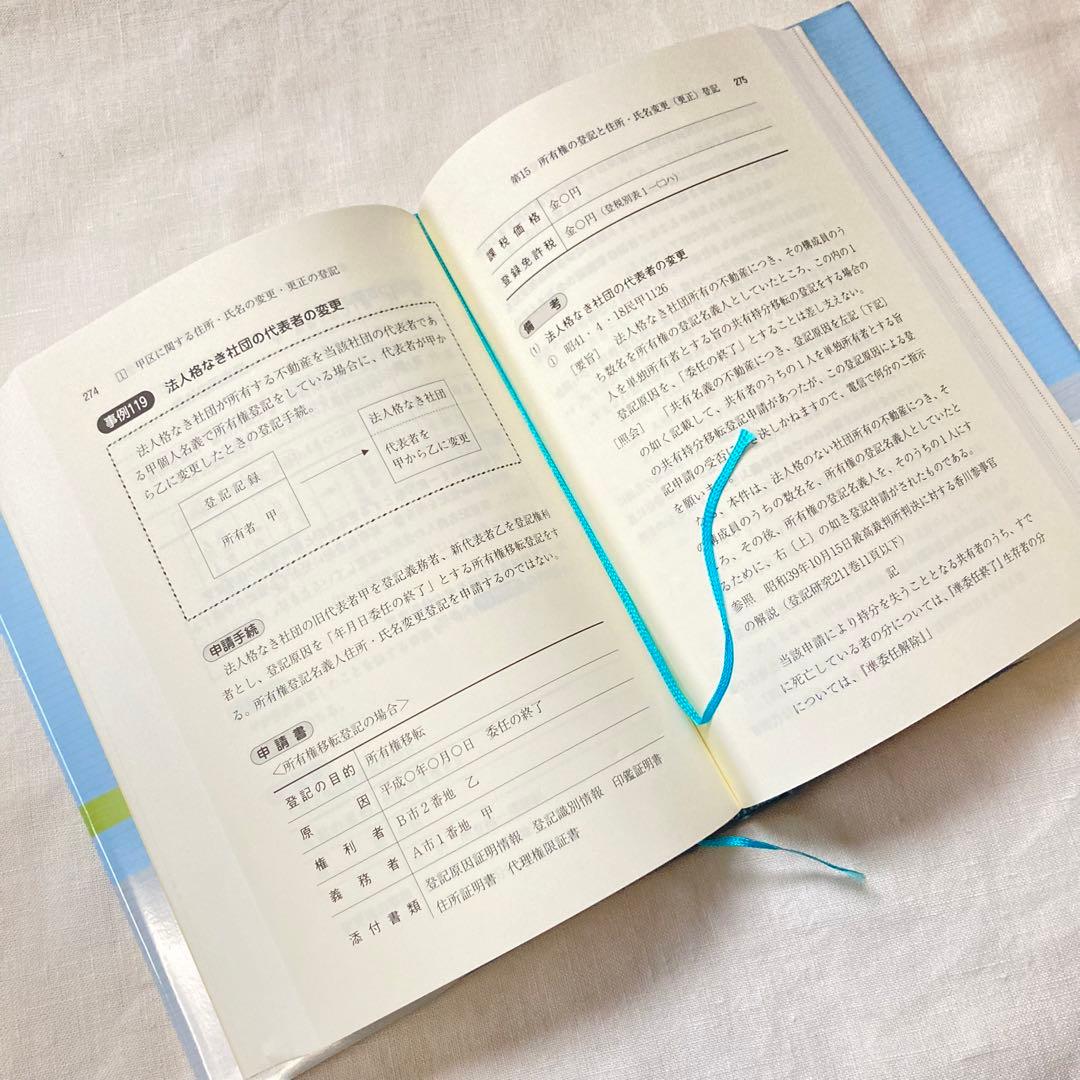 274 1 甲区に関する住所・氏名の変更・更正の登記
事例119 法人格なき社団の代表者の変更
法人格なき社団が所有する不動産を当該社団の代表者であ
る甲個人名義で所有権登記をしている場合に、代表者が甲か
ら乙に変更したときの登記手続。
登記記録
所有者 甲
法人格なき社団
代表者を
甲から乙に変更
申請手続
法人格なき社団の旧代表者甲を登記義務者、新代表者乙を登記権利
者とし、登記原因を「年月日委任の終了」とする所有権移転登記をす
る。所有権登記名義人住所・氏名変更登記を申請するのではない。
申請書
<所有権移転登記の場合>
登記の目的 所有権移転
原因 平成〇年〇月〇日 委任の終了
権利者 B市2番地 乙
義務者 A市1番地 甲
添付書類 登記原因証明情報 登記識別情報 印鑑証明書
住所証明書 代理権限証書
第15 所有権の登記と住所・氏名変更(更正)登記 275
課税価格 金〇円
登録免許税 金〇円(登税別表1一□ハ)
備考
(1) 法人格なき社団の代表者の変更
① 昭41・4・18民甲1126
[要旨] 法人格なき社団所有の不動産につき、その構成員のう
ち数名を所有権の登記名義人としていたところ、この内の1
人を単独所有者とする旨の共有持分移転の登記をする場合の
登記原因を、「委任の終了」とすることは差し支えない。
[照会] 「共有名義の不動産につき、登記原因を左記〔下記〕
の如く記載して、共有者のうちの1人を単独所有者とする旨
の共有持分移転登記申請があつたが、この登記原因による登
記申請の受否 決しかねますので、電信で何分のご指示
を願います。
本件は、法人格のない社団所有の不動産につき、そ
の構成員のうちの数名を、所有権の登記名義人としていたと
ろ、その後、所有権の登記名義人を、そのうちの1人にす
るために、右〔上〕の如き登記申請がされたものである。
参照 昭和39年10月15日最高裁判所判決に対する香川参事官
の解説(登記研究211巻11頁以下)
記
当該申請により持分を失うこととなる共有者のうち、すで
に死亡している者の分については、『準委任終了』生存者の分
については、『準委任解除』」